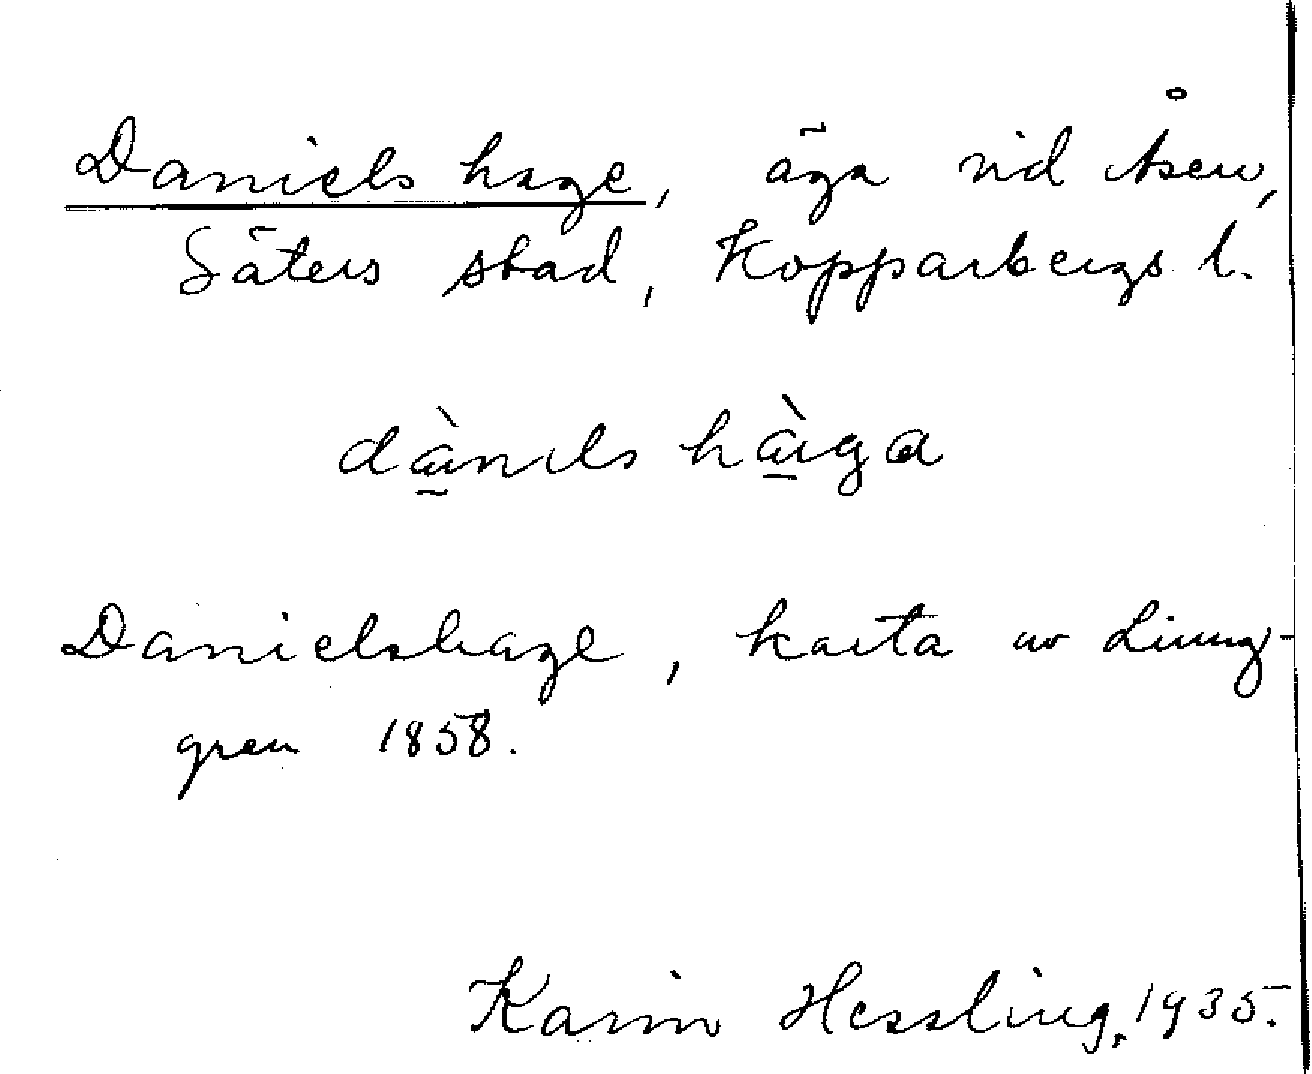 Daniels hage, äga vid Åsen,
Säters stad, Kopparbergs l.
dànıls hàga
Danielshage, karta av Ljung-
gren 1858.
Karin Hessling, 1935.